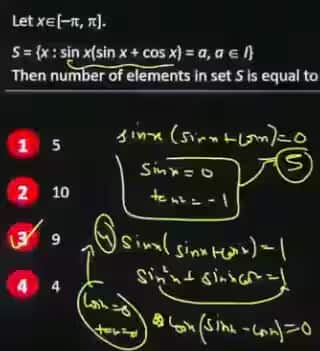 Let x∈[−π, π].
S = {x : sin x(sin x + cos x) = a, a ∈ I}
Then number of elements in set S is equal to
1 5
2 10
3 9
4 4
sinx (sinx + cosx) = 0
sinx = 0
tanx = -1
5
4 sinx (sinx + cosx) = 1
sin²x + sinx cosx = 1
cosx = 0
cosx (sinx - cosx) = 0